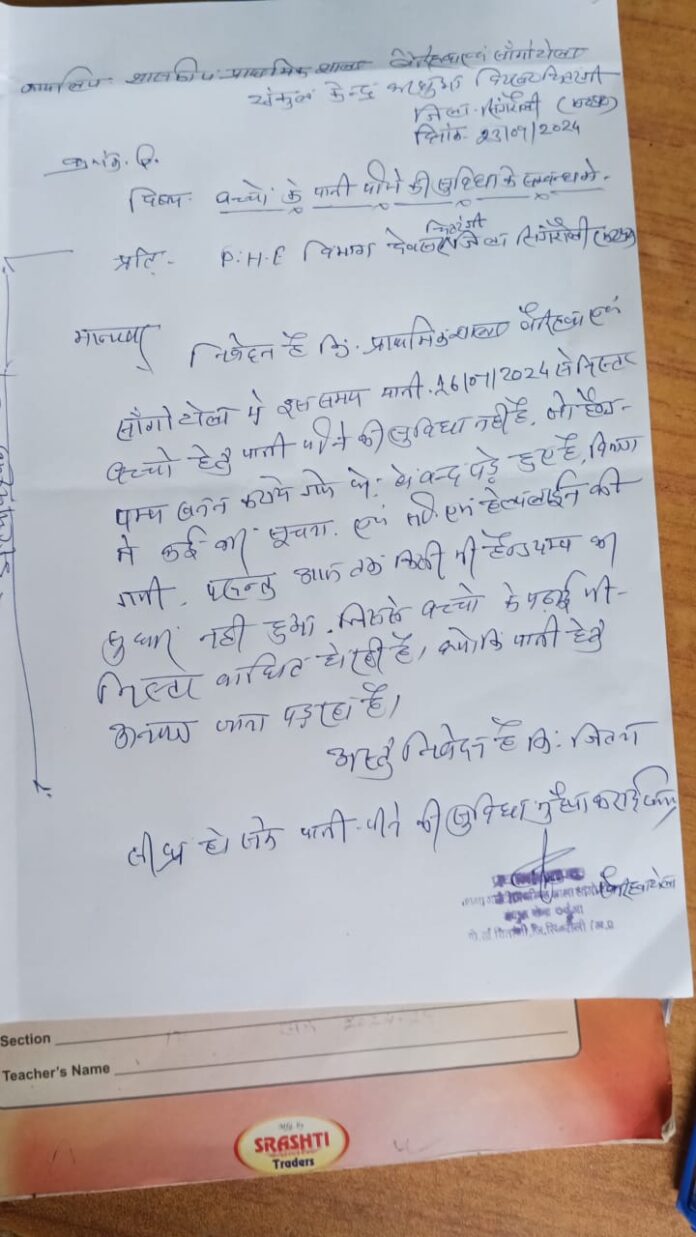 कार्यालय शासकीय प्राथमिक शाला बैरिहवा एवं लौंगोटोला
संकुल केन्द्र विकासखण्ड चितरंगी
जिला-सिंगरौली (म०प्र०)
दिनांक 23/07/2024
क्रमांक. Q.
विषय- बच्चों के पानी पीने की सुविधा के सम्बन्ध में-
प्रति- P.H.E विभाग देवसर चितरंगी जिला सिंगरौली (म०प्र०)
मान्यवर
निवेदन है कि. प्राथमिक शाला बैरिहवा एवं
लौंगोटोला में इस समय यानी. 16/07/2024 से निरन्तर
बच्चो हेतु पानी पीने की सुविधा नही है. जो हैण्ड-
पम्प खनन कराये गये थे. वे बन्द पड़े हुए है. विभाग
मे कई बार सूचना. एवं सी. एम हेल्पलाईन की
गयी. परन्तु आज तक किसी भी हैन्डपम्प का
सुधार नही हुआ. जिससे बच्चो के पढ़ाई भी-
निरन्तर बाधित हो रही है। क्योकि पानी हेतु
अन्यत्र जाना पड़ रहा है।
अस्तु निवेदन है कि. जितना
शीघ्र हो सके पानी-पीने की सुविधा मुहैया कराई जाय
बैरिहवाटोला
Section
Teacher's Name
Mfg by
SRASHTI
Traders